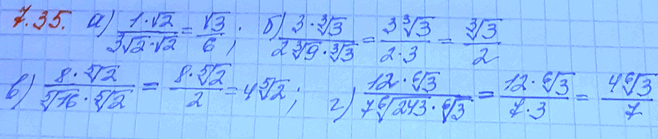 7.35. а) (1·√2)/(3√2·√2) = √3/6; б) (3·∛3)/(2∛9·∛3) = (3∛3)/(2·3) = ∛3/2
в) (8·⁵√2)/(⁵√16·⁵√2) = (8·⁵√2)/2 = 4⁵√2; г) (12·⁶√3)/(7⁶√243·⁶√3) = (12·⁶√3)/(7·3) = (4⁶√3)/7